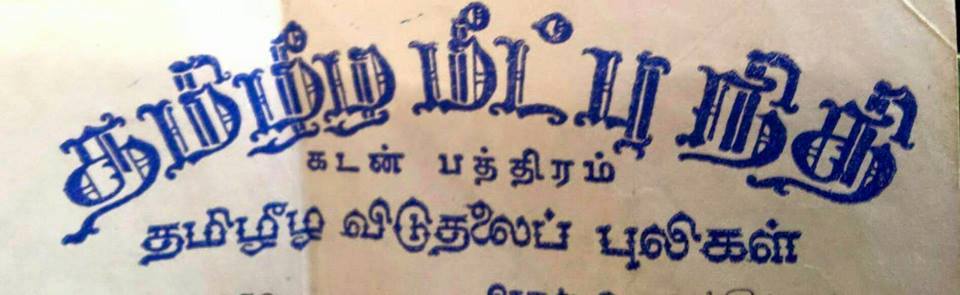 தமிழீழ மீட்பு நிதி
கடன் பத்திரம்
தமிழீழ விடுதலைப் புலிகள்